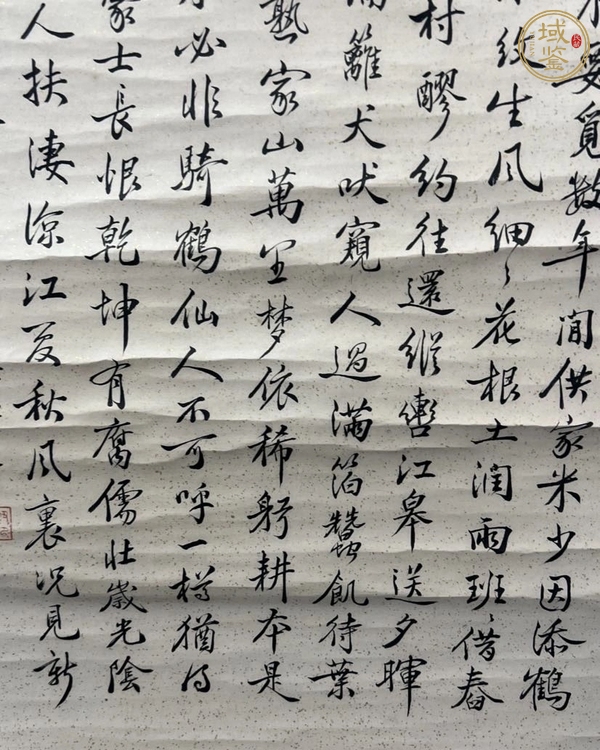 要覓數年閒供家米少因添鶴
紋生風細〻花根土潤雨班〻借舂
村醪約往還縱轡江皋送夕暉
隔籬犬吠窺人過滿箔蠶飢待葉
熟家山萬里梦依稀躬耕本是
必非騎鶴仙人不可呼一樽猶得
豪士長恨乾坤有腐儒壯歲光陰
人扶淒涼江夏秋風裏況見新
域鑒